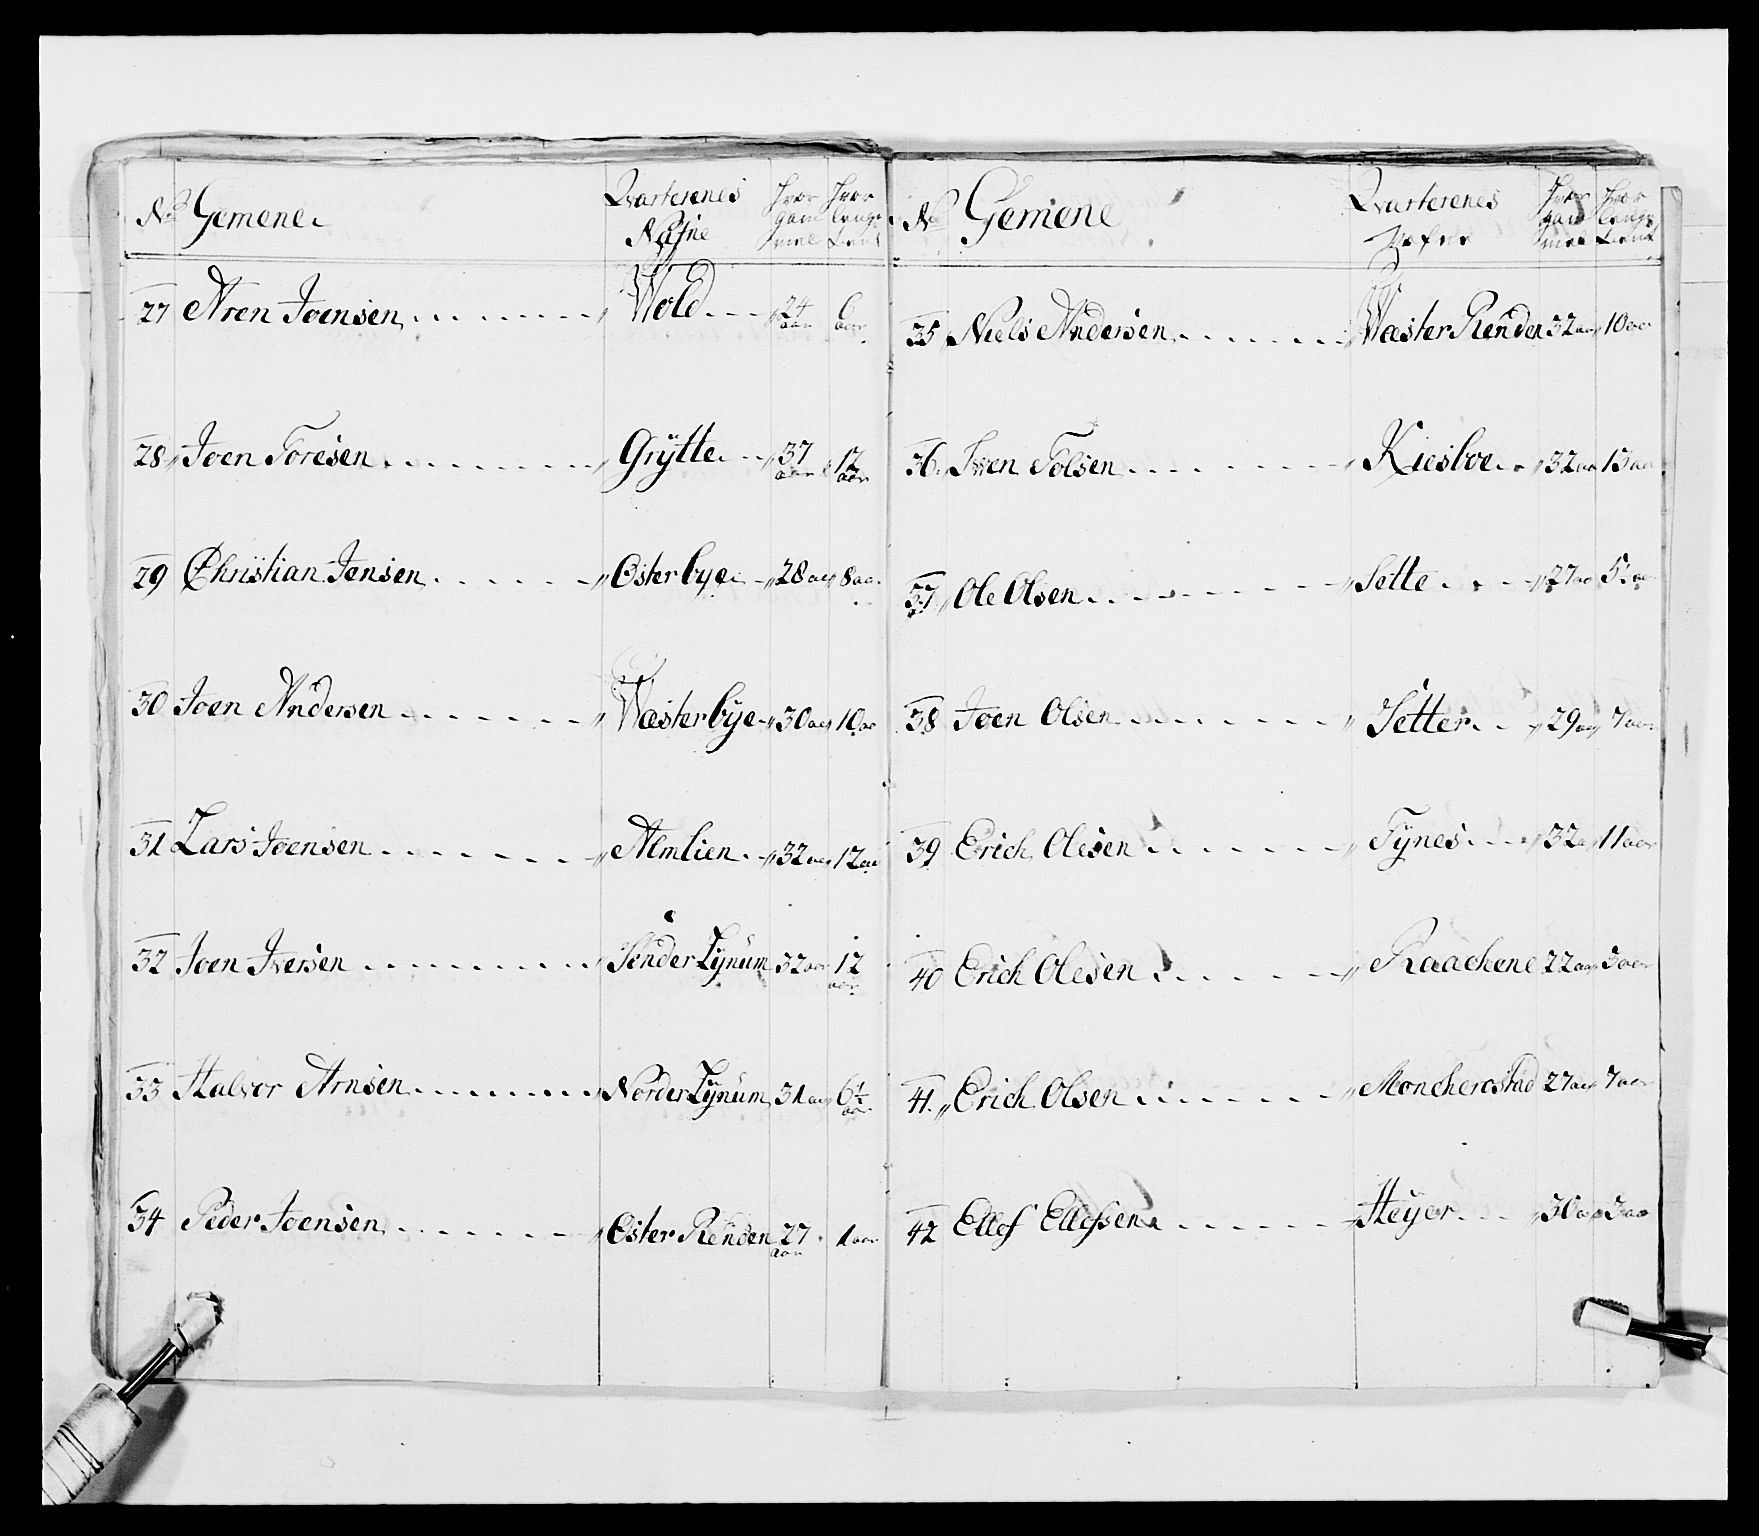 No Gemene Qvarterenes Nafne Hvor gammel Hvor længe tient
27 Aren Joensen Wold 24 aar 6 aar
28 Joen Toresen Grÿtte 37 aar 12 aar
29 Christian Jensen Østerbye 28 aar 8 aar
30 Joen Andersen Wæsterbÿe 30 aar 10 aar
31 Lars Joensen Almlien 32 aar 12 aar
32 Joen Iversen Sønder Lÿnum 32 aar 12 aar
33 Halvor Arnsen Norder Lÿnum 31 aar 6½ aar
34 Peder Joensen Øster Renden 27 aar 1 aar
No Gemene Qvarterenes Nafne Hvor gammel Hvor længe tient
35 Niels Andersen Wæster Renden 32 aar 10 aar
36 Iwen Tolsen Kiesboe 32 aar 13 aar
37 Ole Olsen Sette 27 aar 5 aar
38 Joen Olsen Setter 29 aar 7 aar
39 Erich Olesen Tÿnes 32 a 11 aar
40 Erich Olesen Raachene 22 aar 3 aar
41 Erich Olsen Moncherostad 27 aar 7 aar
42 Ellef Ellefsen Heÿer 30 aar 3 aar